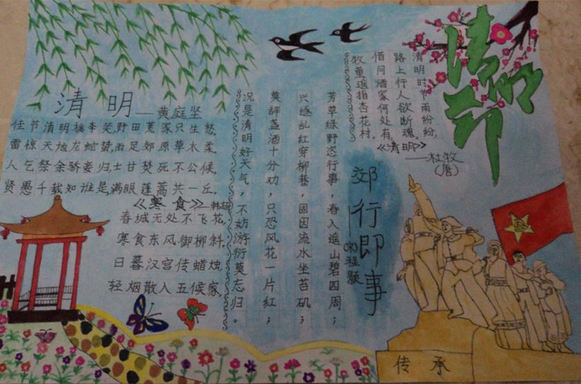 清明节
清明时节雨纷纷,
路上行人欲断魂。
借问酒家何处有,
牧童遥指杏花村。
《清明》
—杜牧
(唐)
郊行即事
(宋)程颢
芳草绿野恣行事,春入遥山碧四周;
兴逐乱红穿柳巷,困因流水坐苔矶;
莫辞盏酒十分劝,只恐风花一片红;
况是清明好天气,不妨游衍莫忘归。
清明——黄庭坚
佳节清明桃李笑野田荒冢只生愁
雷惊天地龙蛇蛰雨足郊原草木柔
人乞祭余骄妾归士甘焚死不公候
贤愚千载知谁是满眼蓬蒿共一丘,
《寒食》韩翃
春城无处不飞花,
寒食东风御柳斜,
日暮汉宫传蜡烛
轻烟散入五候家
传承